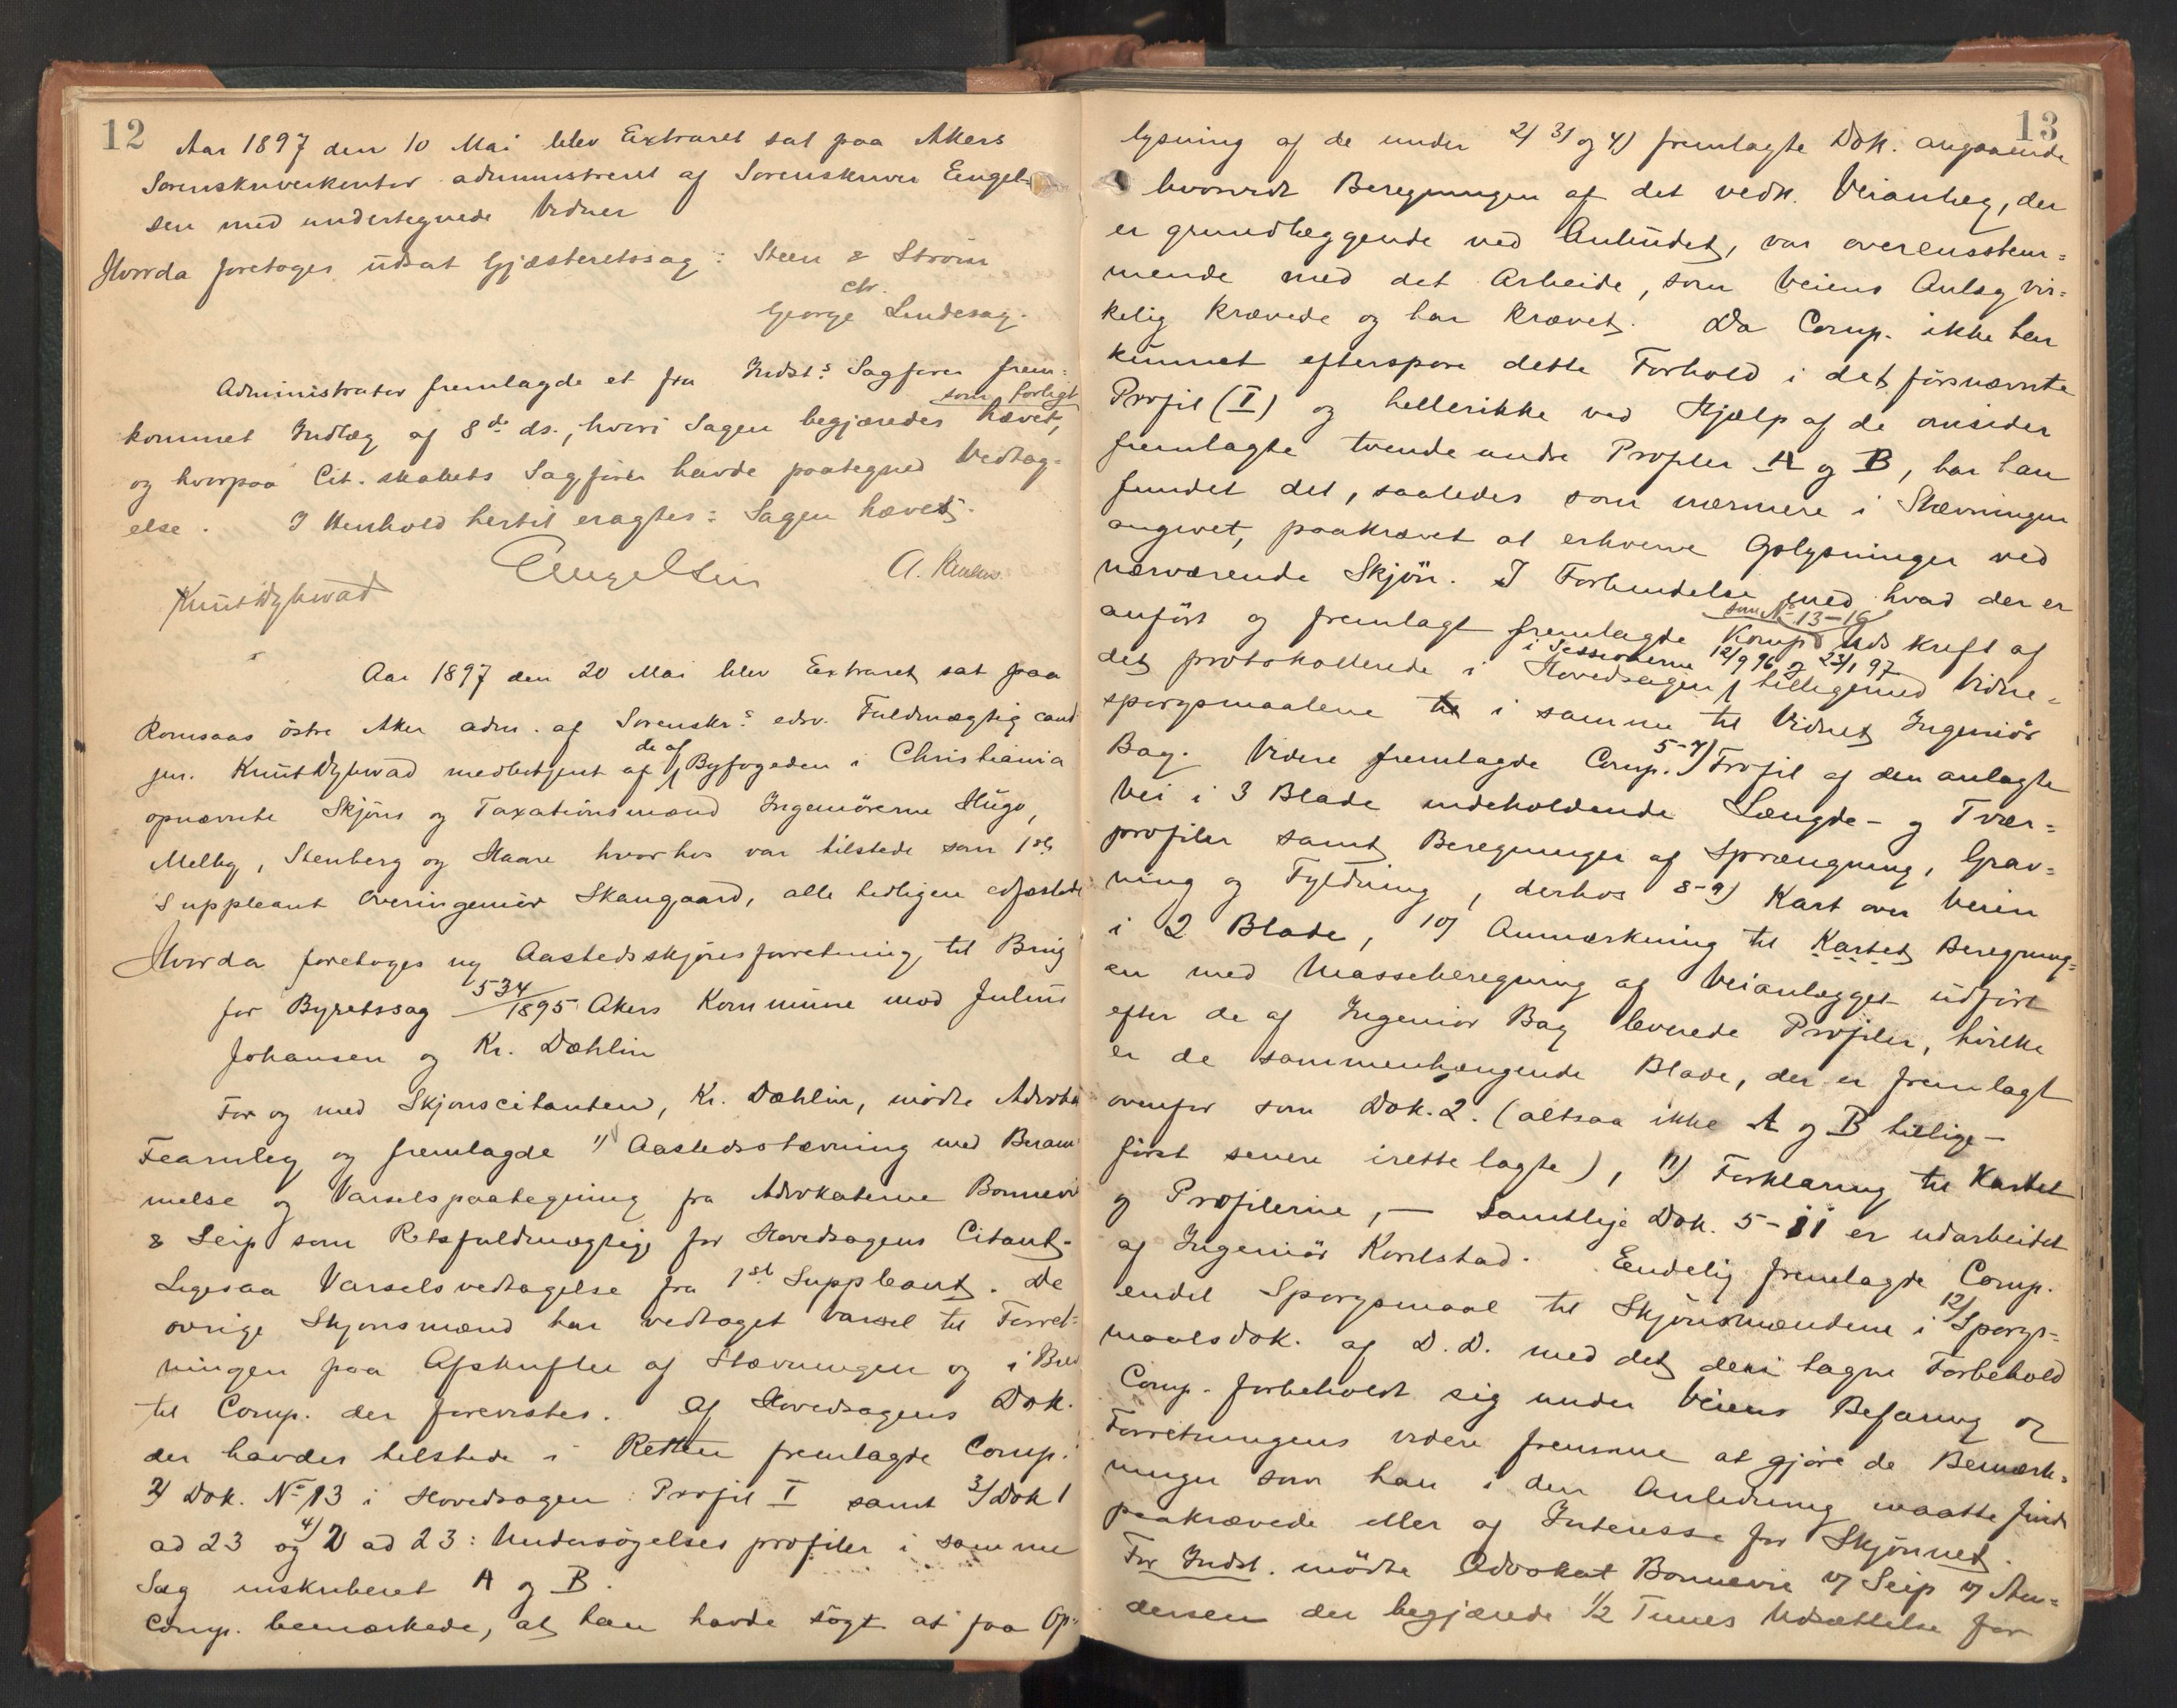 12
Aar 1897 den 10 Mai blev Extraret sat paa Akers
Sorenskriverkontor administreret af Sorenskriver Engel-
sen med undertegnede Vidner
Hvorda foretoges udsat Gjæsteretssag: Steen & Strøm
ctr.
George Lindesay.
Administrator fremlagde et fra Indst.s Sagfører frem-
kommet Indlæg af 8de ds., hvori Sagen begjæredes som forligt hævet,
og hvorpaa Cit.skabets Sagfører havde paategned Vedtag-
else. I Henhold hertil eragtes: Sagen hævet.
Engelsen
Knut Dybwad
Aar 1897 den 20 Mai blev Extraret sat paa
Romsaas östre Aker adm. af Sorenskr.s edsv. Fuldmægtig cand
jur. Knut Dybwad medbetjent af de af Byfogeden i Christiania
opnævnte Skjöns og Taxationsmænd Ingeniörerne Hugo,
Melby, Stenberg og Haare hvorhos var tilstede som 1ste
Suppleant Overingeniör Skaugaard, alle tidligere edfæstede
Hvorda foretoges ny Aastedsskjönsforretning til Brug
for Byretssag 534/1895 Akers Kommune mod Julius
Johansen og Kr. Dæhlin
For og med Skjonscitanten, Kr. Dæhlin, mödte Advokat
Fearnley og fremlagde 1) Aastedsstævning med Beram
melse og Varselspaategning fra Advokaterne Bonnevie
& Seip som Retsfuldmægtige for Hovedsagens Citant.
Ligesaa Varselsvedtagelse fra 1ste Suppleant. De
ovrige Skjonsmænd har vedtaget Varsel til Forret-
ningen paa Afskrifter af Stævningen og i Brev
til Comp. der forevistes. Af Hovedsagens Dok.
der havdes tilstede i Retten fremlagde Comp.:
2) Dok. No 13 i Hovedsagen: Profil I samt 3) Dok 1
ad 23 og 4) 2 ad 23: Undersögelses profiler i samme
Sag inskriberet A og B.
Comp. bemærkede, at han havde sögt at faa Op-
13
lysning af de under 2) 3) og 4) fremlagte Dok. angaaende
hvorvidt Beregningen af det vedk. Veianlæg, der
er grundlæggende ved Anbudet, var overensstem-
mende med det Arbeide, som Veiens Anlæg vir-
kelig krævede og har krævet. Da Comp. ikke har
kunnet efterspore dette Forhold i det førnævnte
Profil (I) og hellerikke ved Hjælp af de omsider
fremlagte tvende andre Profiler A og B, har han
fundet det, saaledes som nærmere i Stævningen
angivet, paakrævet at erhverve Oplysninger ved
nærværende Skjön. I Forbindelse med hvad der er
anfört og fremlagt fremlagde Komp som No 13-16 Udskrift af
det protokollerede i Hovedsagen i Sessionerne 12/9 96 og 23/1 97 tilligemed Vidne-
spørgsmaalene i samme til Vidnet Ingeniör
Bag. Videre fremlagde Comp. 5-7) Profil af den anlagte
Vei i 3 Blade indeholdende Længde- og Tvær-
profiler samt Beregninger af Sprængning, Grav-
ning og Fyldning, derhos 8-9) Kart over Veien
i 2 Blade, 10) Anmærkning til Kartet Beregning-
en med Masseberegning af Veianlægget udfört
efter de af Ingeniör Bag leverede Profiler, hvilke
er de sammenhængende Blade, der er fremlagt
ovenfor som Dok. 2. (altsaa ikke A og B tillige-
först senere irettelagte), 11) Forklaring til Kartet
og Profilerne, — Samtlige Dok. 5-11 er udarbeidet
af Ingeniör Korelstad. Endelig fremlagde Comp.
endel Spørgsmaal til Skjönsmændene i 12) Spørgs-
maalsdok. af D. D. med det deri tagne Forbehold
Comp. forbeholdt sig under Veiens Befaring og
Forretningens videre fremme at gjöre de Bemærk-
ninger som han i den Anledning maatte finde
paakrævede eller af Interesse for Skjönnet.
For Indst. mödte Advokat Bonnevie v/ Seip v/ An-
dersen der begjærede 1/2 Times Udsættelse for